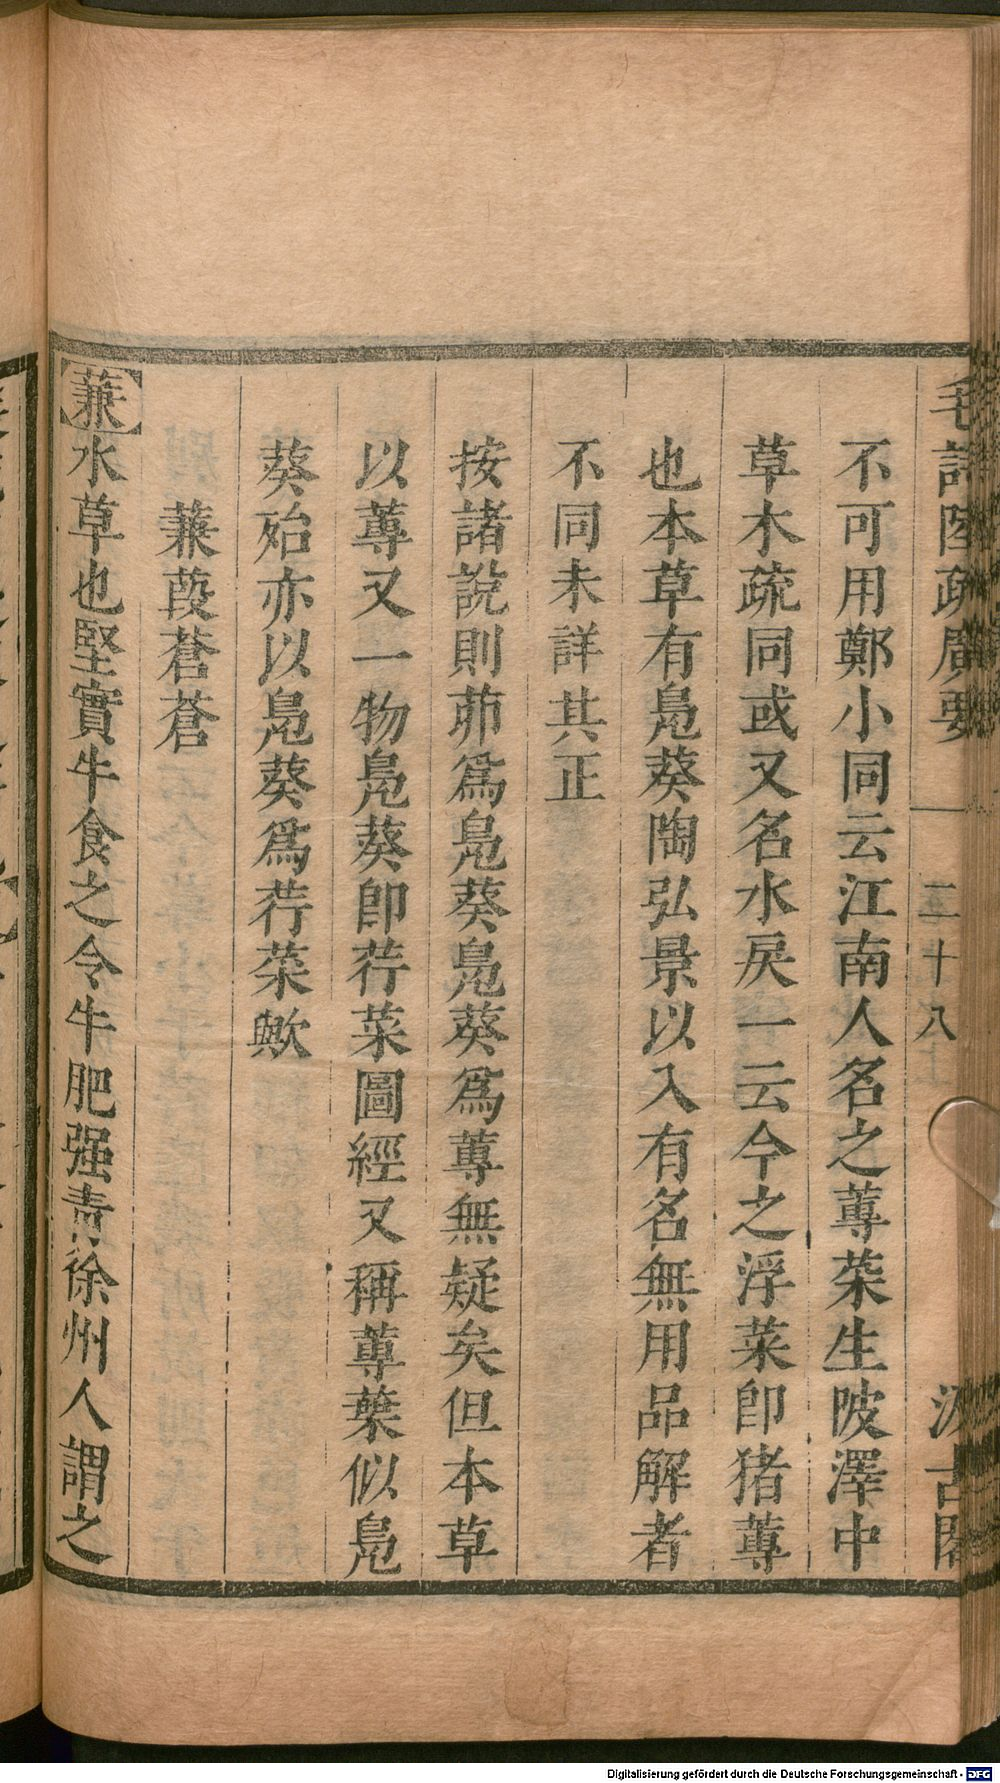 毛詩陸疏廣要 二十八 汲古閣
不可用鄭小同云江南人名之蓴菜生陂澤中
草木疏同或又名水戾一云今之浮菜卽猪蓴
也本草有鳧葵陶弘景以入有名無用品解者
不同未詳其正
按諸說則茆爲鳧葵鳧葵爲蓴無疑矣但本草
以蓴又一物鳧葵卽荇菜圖經又稱蓴葉似鳧
葵殆亦以鳧葵爲荇菜歟
蒹葭蒼蒼
蒹水草也堅實牛食之令牛肥强青徐州人謂之
Digitalisierung gefördert durch die Deutsche Forschungsgemeinschaft - DFG